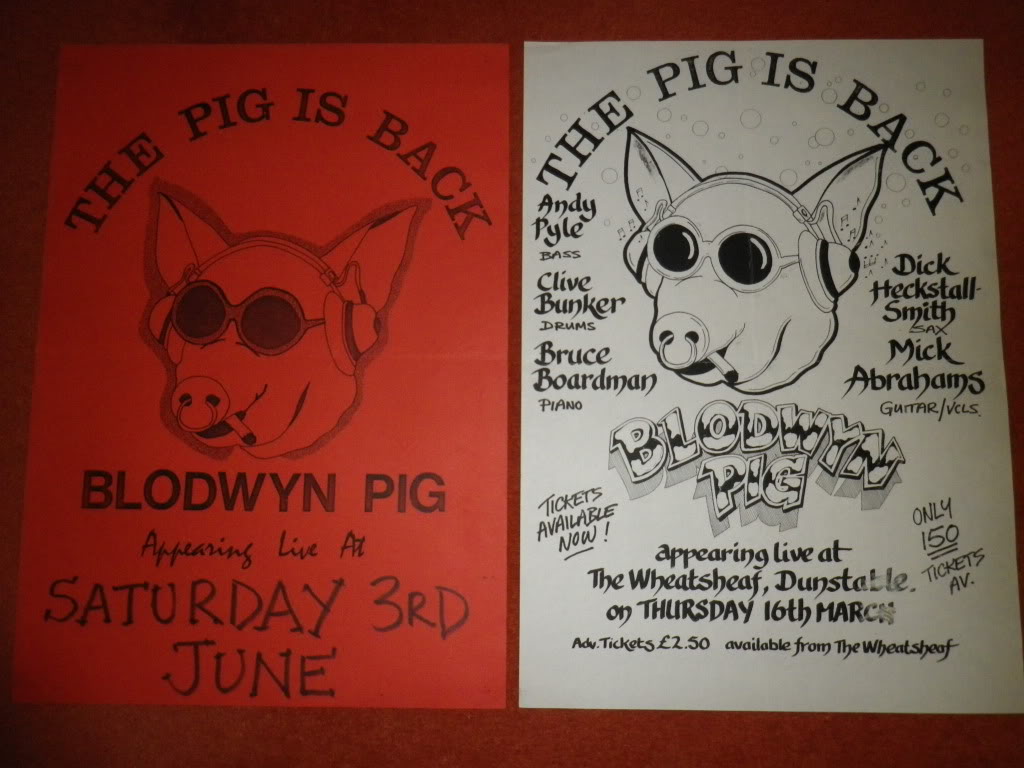 THE PIG IS BACK
BLODWYN PIG
Appearing Live At
SATURDAY 3RD
JUNE
THE PIG IS BACK
Andy
Pyle
BASS
Clive
Bunker
DRUMS
Bruce
Boardman
PIANO
Dick
Heckstall-
Smith
SAX
Mick
Abrahams
GUITAR/VCLS.
BLODWYN
PIG
TICKETS
AVAILABLE
NOW!
ONLY
150
TICKETS
AV.
appearing live at
The Wheatsheaf, Dunstable.
on THURSDAY 16th MARCH
Adv. Tickets £2.50 available from The Wheatsheaf